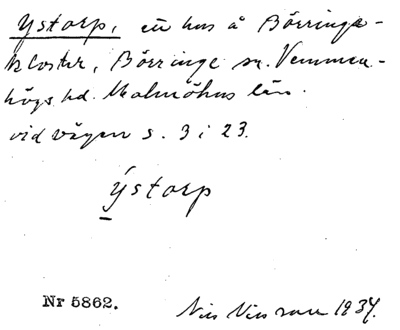 Ystorp, ett hus å Börringe-
kloster, Börringe sn. Vemmen-
högs hd. Malmöhus län.
vid vägen s. 3 i 23.
Ýstorp
Nr 5862.
Nils Nilsson 1934.